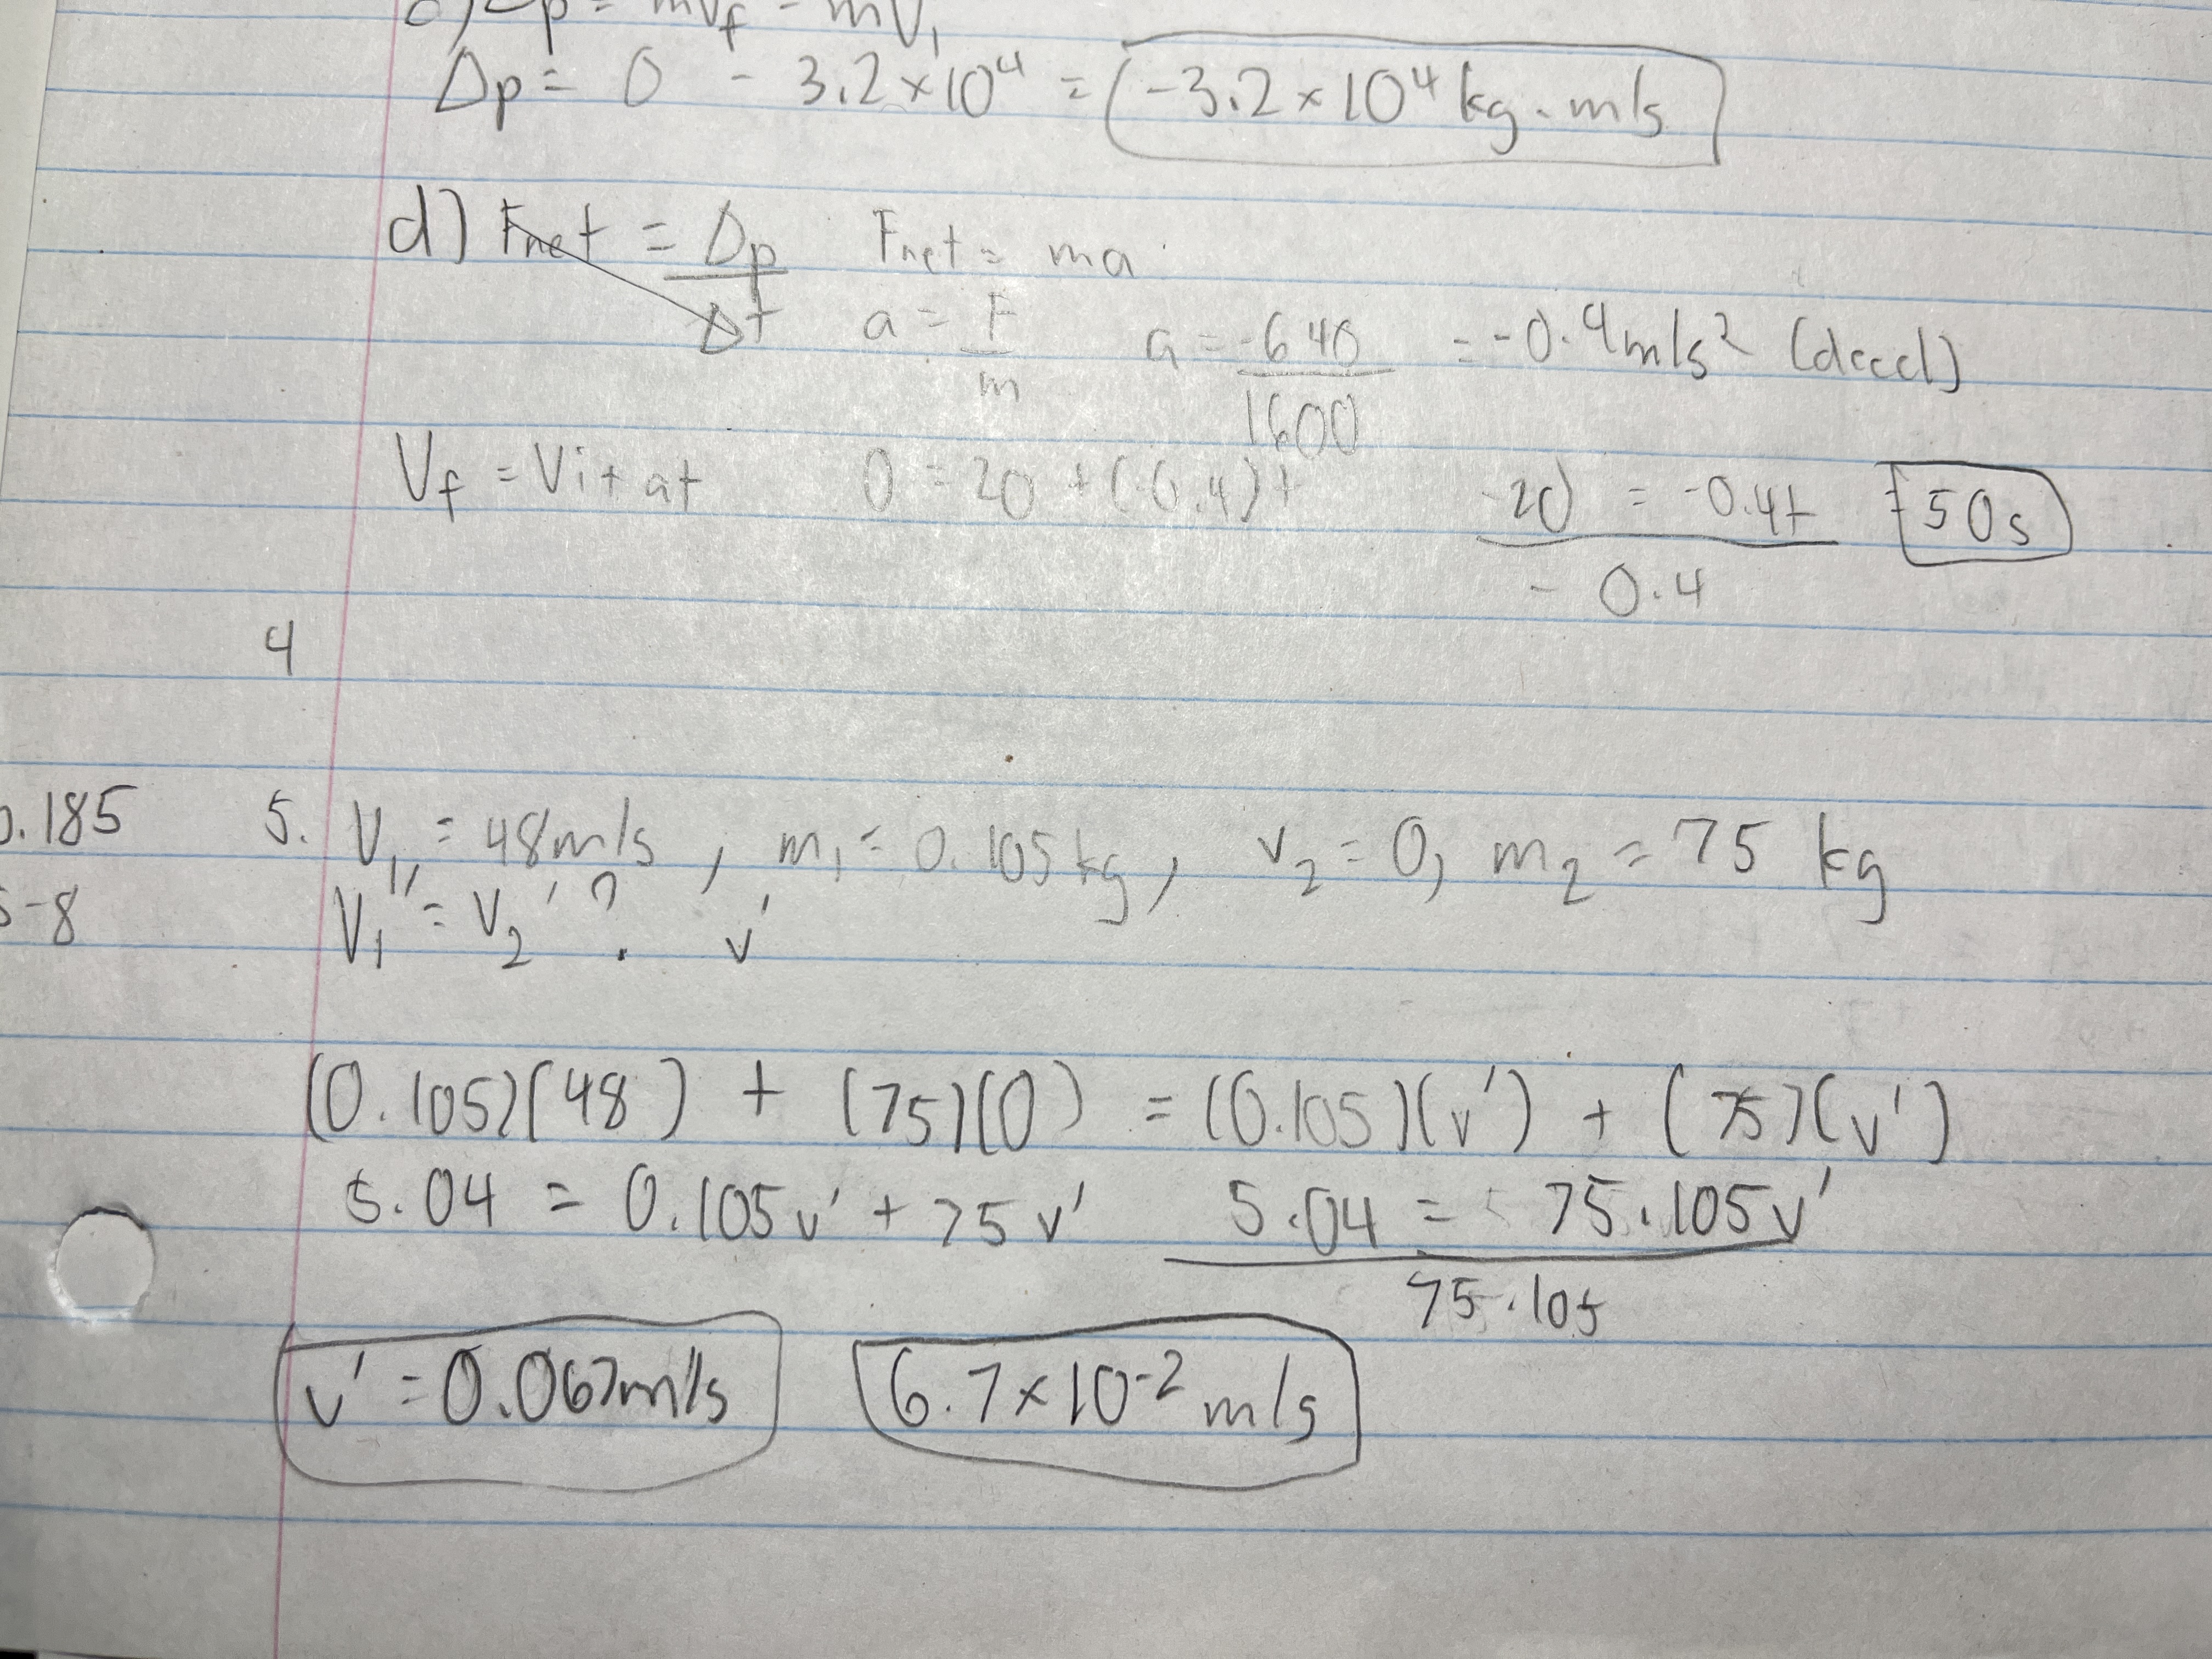 c) Δp = mVf - mV₁
Δp = 0 - 3.2×10⁴ = -3.2×10⁴ kg·m/s
d) Fnet = Δp/Δt Fnet = ma
a = F/m a = -640/1600 = -0.4m/s² (decel)
Vf = Vi + at 0 = 20 + (-0.4)t -20 = -0.4t = 50s
-0.4
4
0.185 5. V₁ = 48m/s, m₁ = 0.105kg, v₂ = 0, m₂ = 75 kg
5-8 V₁' = V₂' ? v'
(0.105)(48) + (75)(0) = (0.105)(v') + (75)(v')
5.04 = 0.105v' + 75v' 5.04 = 75.105v'
75.105
v' = 0.067m/s 6.7×10⁻² m/s